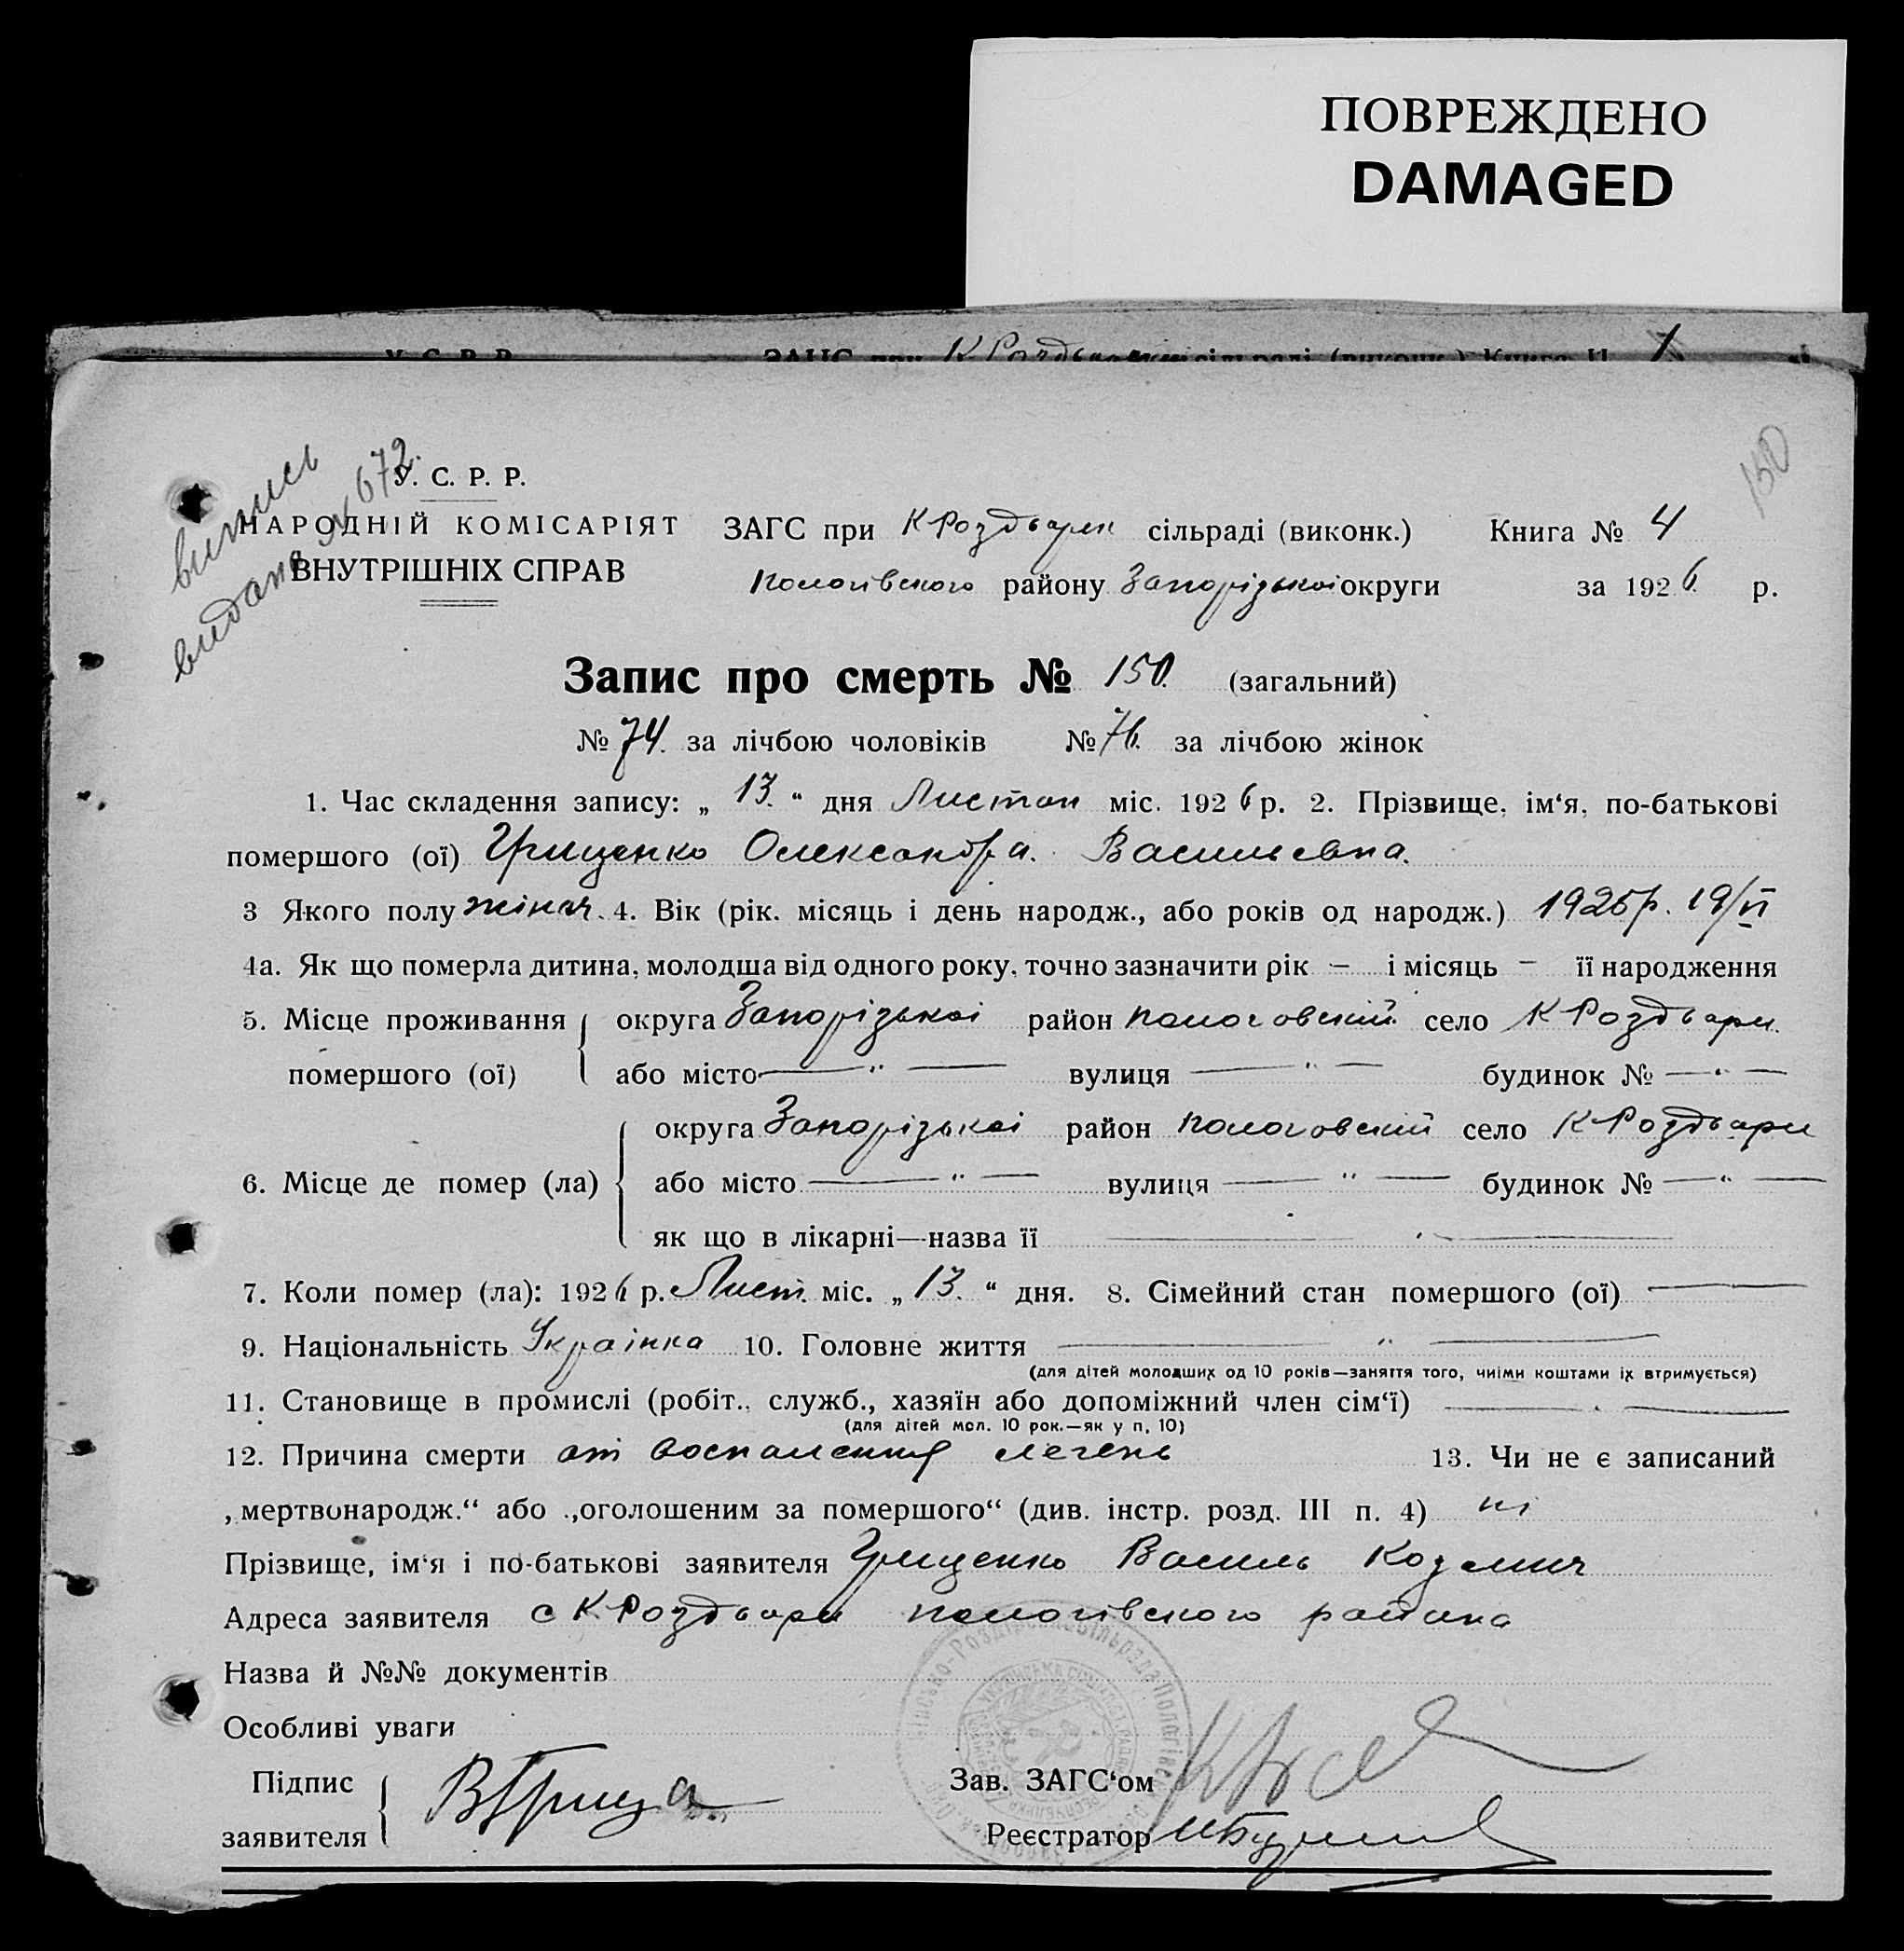 ПОВРЕЖДЕНО
DAMAGED
випись
видана № 672.
150
У. С. Р. Р.
НАРОДНІЙ КОМІСАРІЯТ
ВНУТРІШНІХ СПРАВ
ЗАГС при К Роздьарск сільраді (виконк.) Книга № 4
Пологівского району Запорізькоі округи за 1926 р.
Запис про смерть № 150. (загальний)
№ 74. за лічбою чоловіків № 76. за лічбою жінок
1. Час складення запису: „ 13. “ дня Листоп міс. 1926 р. 2. Прізвище, ім‘я, по-батькові
помершого (ої) Грищенко Олександра. Васильевна.
3 Якого полу жіноч. 4. Вік (рік. місяць і день народж., або років од народж.) 1925 р. 19/VI
4а. Як що померла дитина, молодша від одного року, точно зазначити рік – і місяць – її народження
5. Місце проживання помершого (ої) округа Запорізькоі район пологовский село К Роздьари
або місто — " — вулиця — " — будинок № — " —
6. Місце де помер (ла) округа Запорізькоі район пологовский село К Роздьари
або місто — " — вулиця — " — будинок № — " —
як що в лікарні—назва її
7. Коли помер (ла): 1926 р. Лист. міс. „ 13. “ дня. 8. Сімейний стан помершого (ої) —
9. Національність Українка 10. Головне життя — " —
(для дітей молодших од 10 років—заняття того, чиїми коштами їх втримується)
11. Становище в промислі (робіт., служб., хазяїн або допоміжний член сім‘ї) —
(для дітей мол. 10 рок.—як у п. 10)
12. Причина смерти от воспаления легень 13. Чи не є записаний
„мертвонародж.“ або „оголошеним за помершого“ (див. інстр. розд. III п. 4) ні
Прізвище, ім‘я і по-батькові заявителя Грищенко Василь Козьмич
Адреса заявителя с К. Роздьари пологівского района
Назва й №№ документів
Особливі уваги
Підпис заявителя В Грищ
Зав. ЗАГС‘ом
Реєстратор